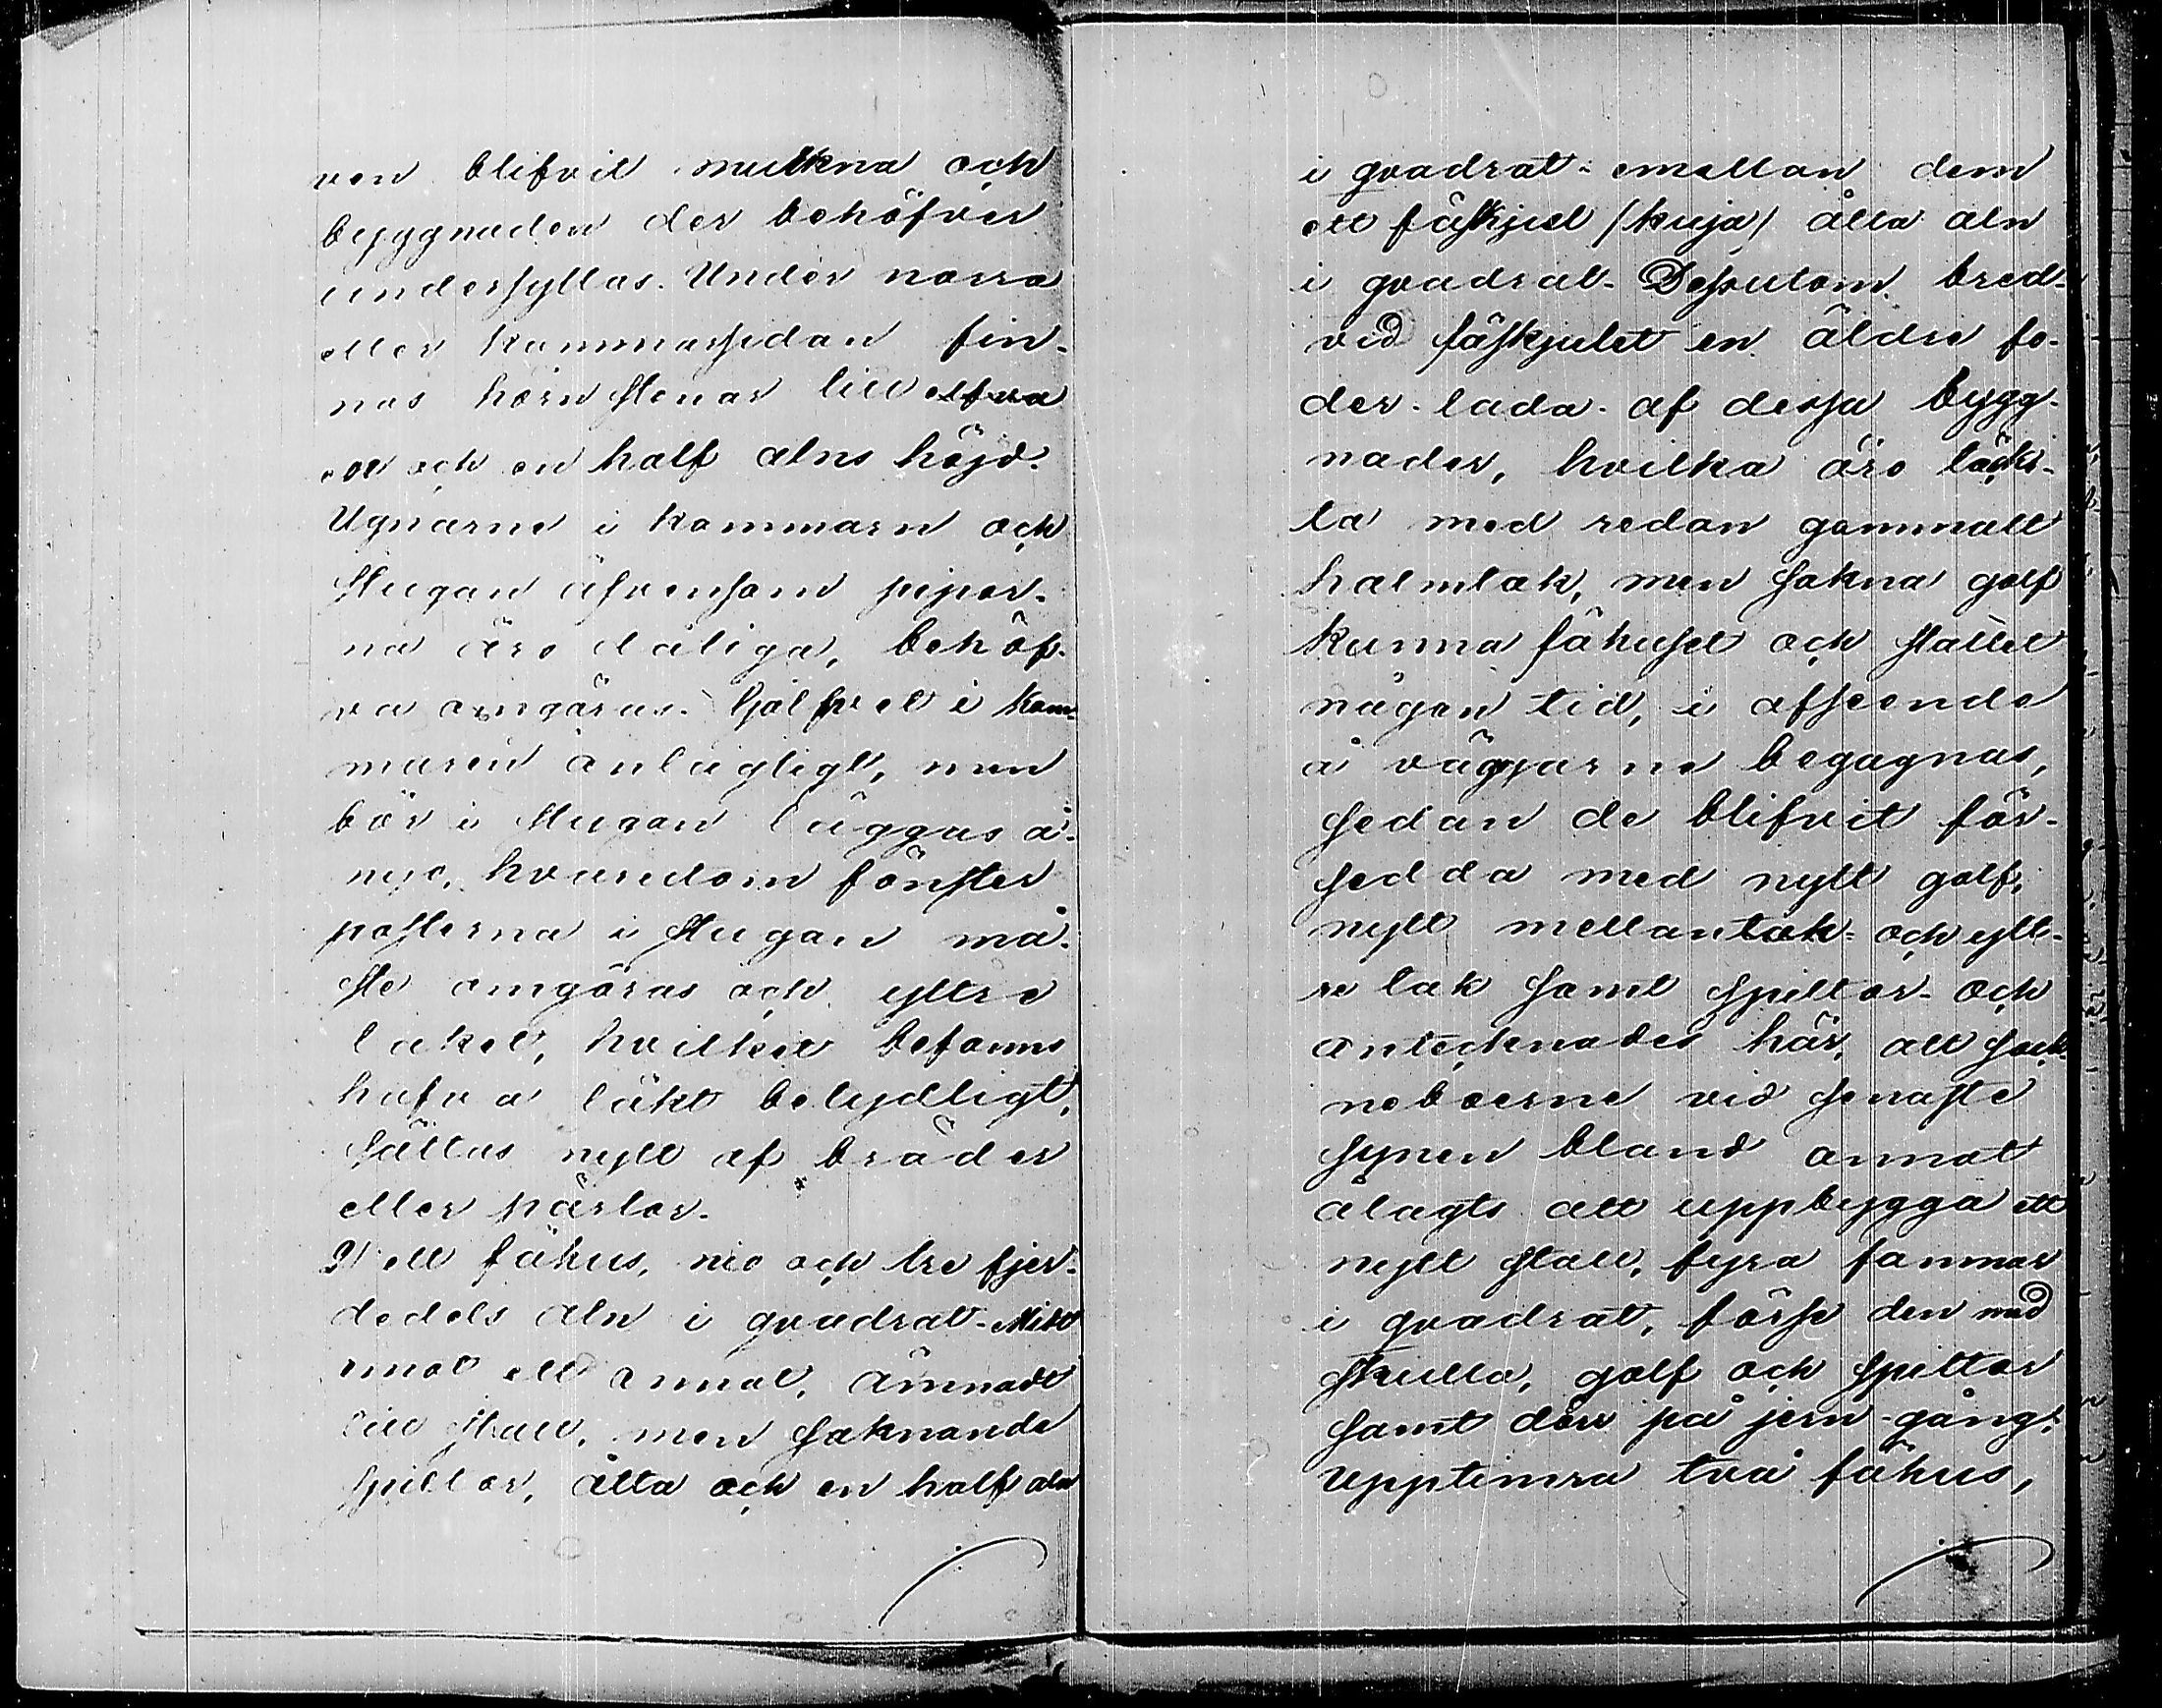 ven blifvit multkna och
byggnaden der behöfver
undersyllas. Under norra
eller kammarsidan fin-
nas hörnstenar till
ett och en half alns höjd.
Ugnarne i kammarn och
stugan äfvensom pipor-
na äro dåliga, behöf-
va omgöras. Golfvet i kam-
maren anlagligt, men
bör i stugan läggas å-
nyo, hvarutom fönster
posterna i stugan må-
ste omgöras och yttre
taket, hvilket befanns
hafva läkt betydligt,
sättas nytt af bräder
eller pärtor.
2) ett fähus, nio och tre fjer-
dedels aln i qvadrat. Midt
emot ett annat, ämnadt
till stall, men saknande
spiltor, åtta och en half aln
i qvadrat. emellan dem
ett fäskjul (kuja) åtta aln
i qvadrat. Dessutom bred-
vid fäskjulet en äldre fo-
der-lada. af dessa bygg-
nader, hvilka äro täck-
ta med redan gammalt
halmtak, men sakna golf
kunna fähuset och stallet
någon tid, i afseende
å väggarne begagnas,
sedan de blifvit för-
sedda med nytt golf,
nytt mellantak- och ytt-
re tak samt spiltor. och
antecknades här, att
neboerne vid senaste
synen bland annat
ålagts att uppbygga ett
nytt stall, fyra famnar
i qvadrat, förse den med
skulla, golf och spiltor
samt dörr på jern-gång.
upptimra två fähus,